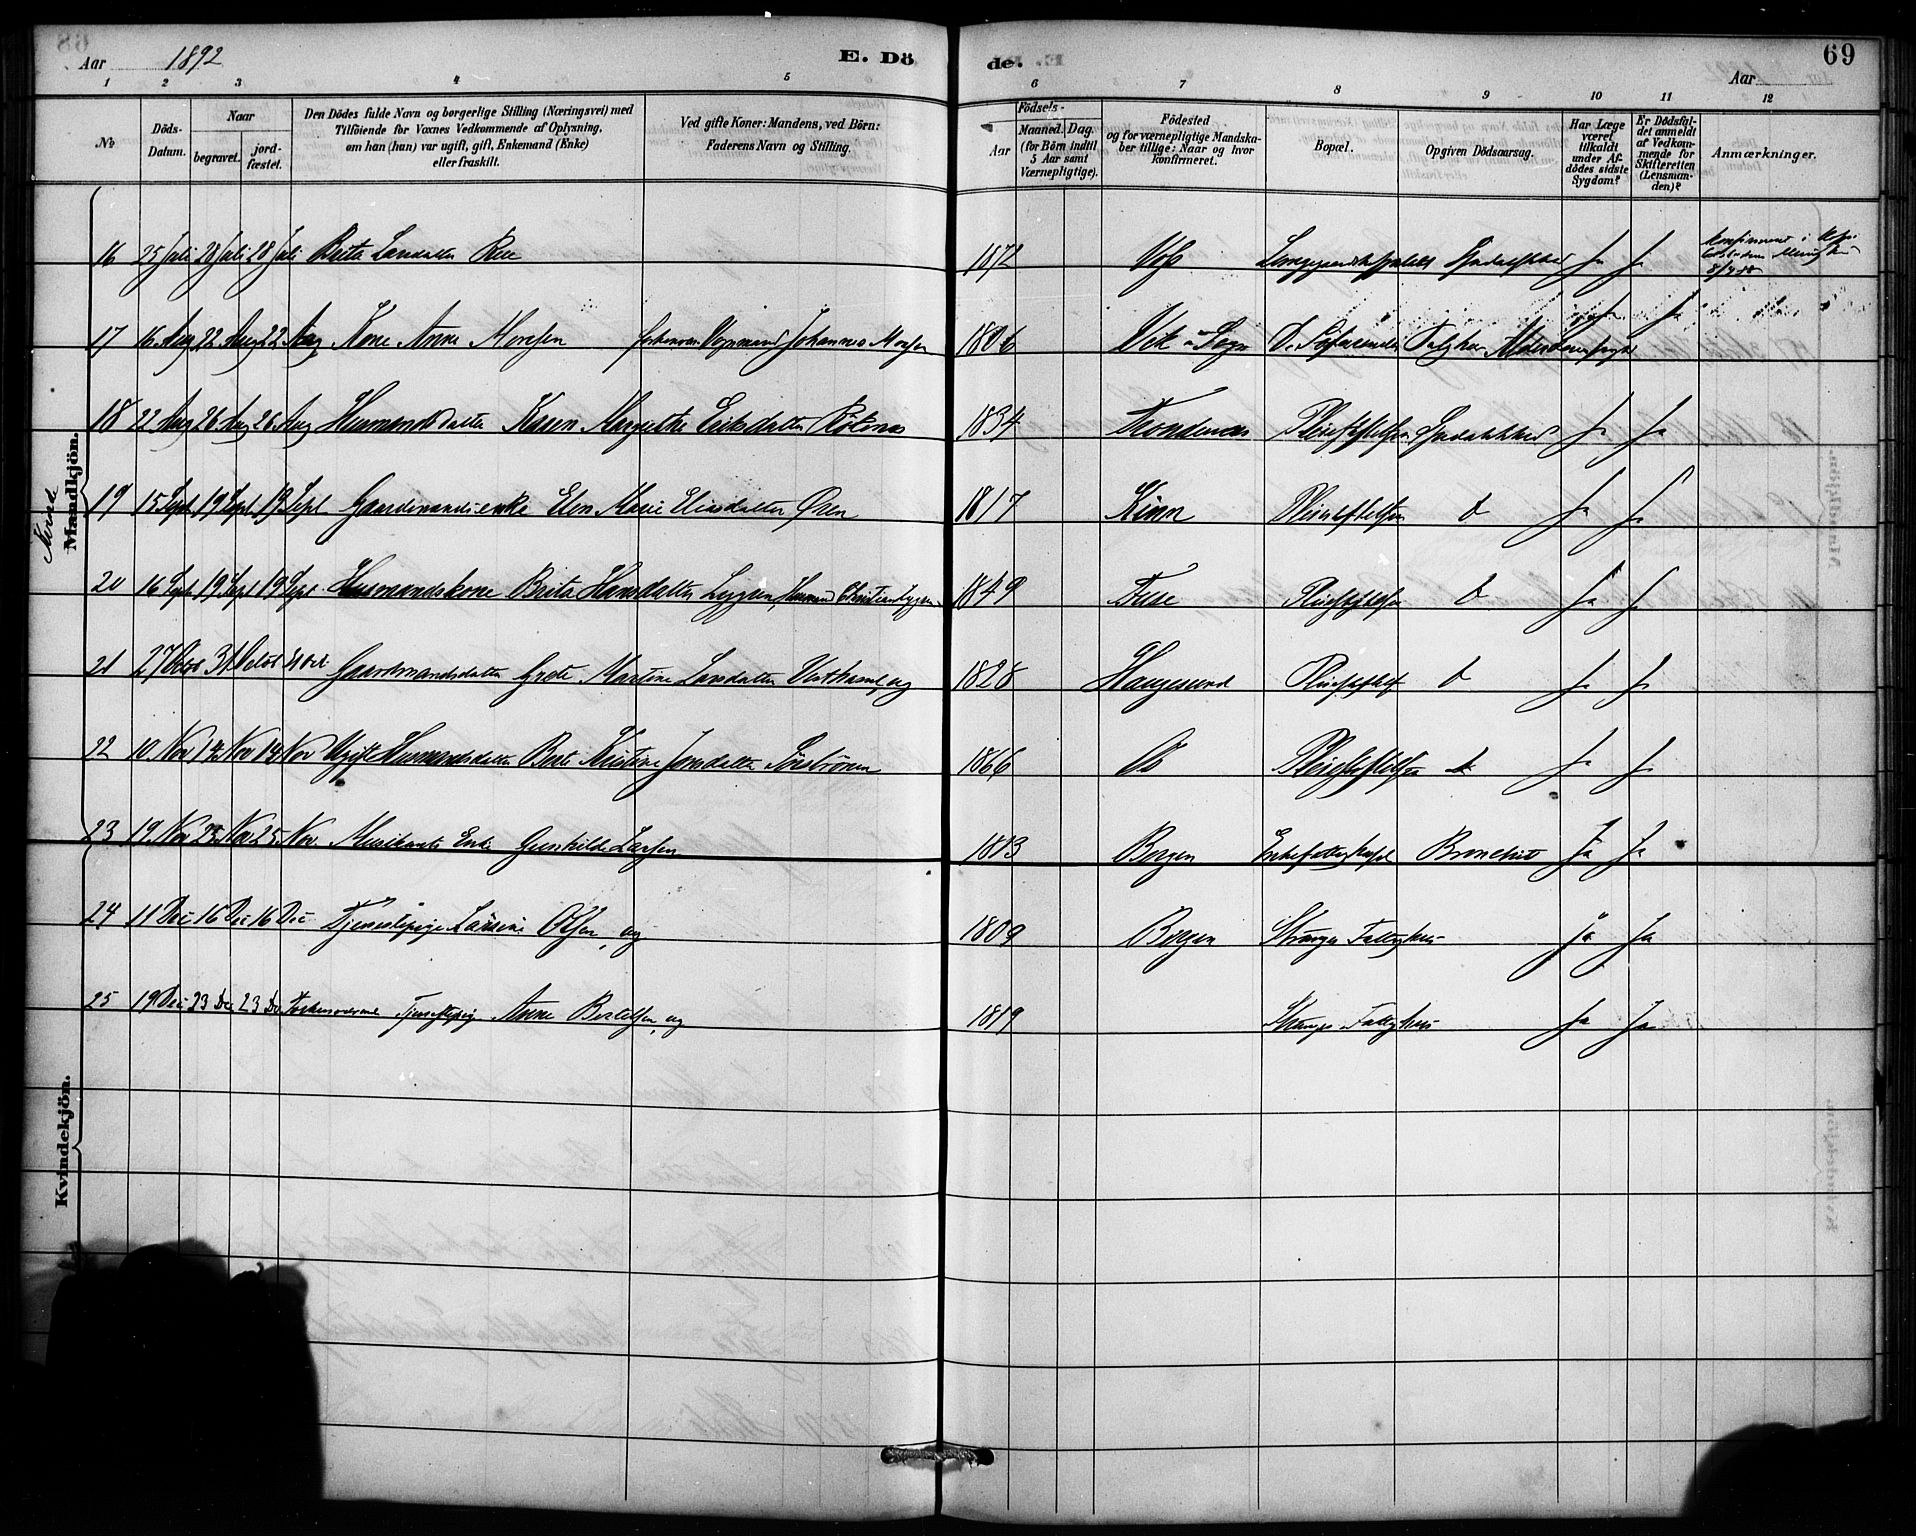 Aar 1892
E. Döde.
Aar
69
1 2 3 4 5 6 7 8 9 10 11 12
No
Döds-Datum.
Naar
begravet.
jord-fæstet.
Den Dödes fulde Navn og borgerlige Stilling (Næringsvei) med
Tilföiende for Voxnes Vedkommende af Oplysning,
om han (hun) var ugift, gift, Enkemand (Enke)
eller fraskilt.
Ved gifte Koner: Mandens, ved Börn:
Faderens Navn og Stilling.
Födsels-
Aar
Maaned. Dag.
(for Börn indtil
5 Aar samt
Værnepligtige).
Födested
og for værnepligtige Mandska-
ber tillige: Naar og hvor
konfirmeret.
Bopæl.
Opgiven Dödsaarsag.
Har Læge
været
tilkaldt
under Af-
dødes sidste
Sygdom?
Er Dödsfal-
det anmeldt
af Vedkom-
mende for
Skifteretten
(Lensman-
den)?
Anmærkninger.
Kvinde
Mandkjön.
16 25 Juli 28 Juli 28 Juli Brita Larsdatter 1872 Ja Ja
17 16 Aug 22 Aug 22 Aug Kone Anne Monsen Johannes Monsen 1806 Vik i Sogn Ja Ja
18 22 Aug 26 Aug 26 Aug Husmandsdatter Karen Margrethe Eriksdatter 1834 Trondenæs Pleiestiftelsen Spedalskhed Ja Ja
19 15 Sept 19 Sept 19 Sept Gaardmandsenke Elen Marie Eliasdatter Øren 1817 Kinn Pleiestiftelsen Do Ja Ja
20 16 Sept 19 Sept 19 Sept Husmandskone Brita Hansdatter Lygren, Husmand Christian Lygren 1849 Fuse Pleiestiftelsen Do Ja Ja
21 27 Octbr 31 Octbr 31 Oct Gaardmandsdatter Grete Martine Larsdatter ug 1828 Haugesund Pleiestiftels Do Ja Ja
22 10 Nov 14 Nov 14 Nov Ugift Husmandsdatter Berte Kristine Jonsdatter 1866 Os Pleiestiftelsen Do Ja Ja
23 19 Nov 25 Nov 25 Nov. Musikants Enke Gunhilde Larsen 1813 Bergen Bronchit Ja Ja
24 11 Dec 16 Dec 16 Dec Tjenestepige Larsine Olsen, ug 1809 Bergen Stranges Fattighus Ja Ja
25 19 Dec 23 Dec 23 Dec Tjenestepige Anne Bertelsen, ug 1819 Stranges Fattighus Ja Ja
Kvindekjön.